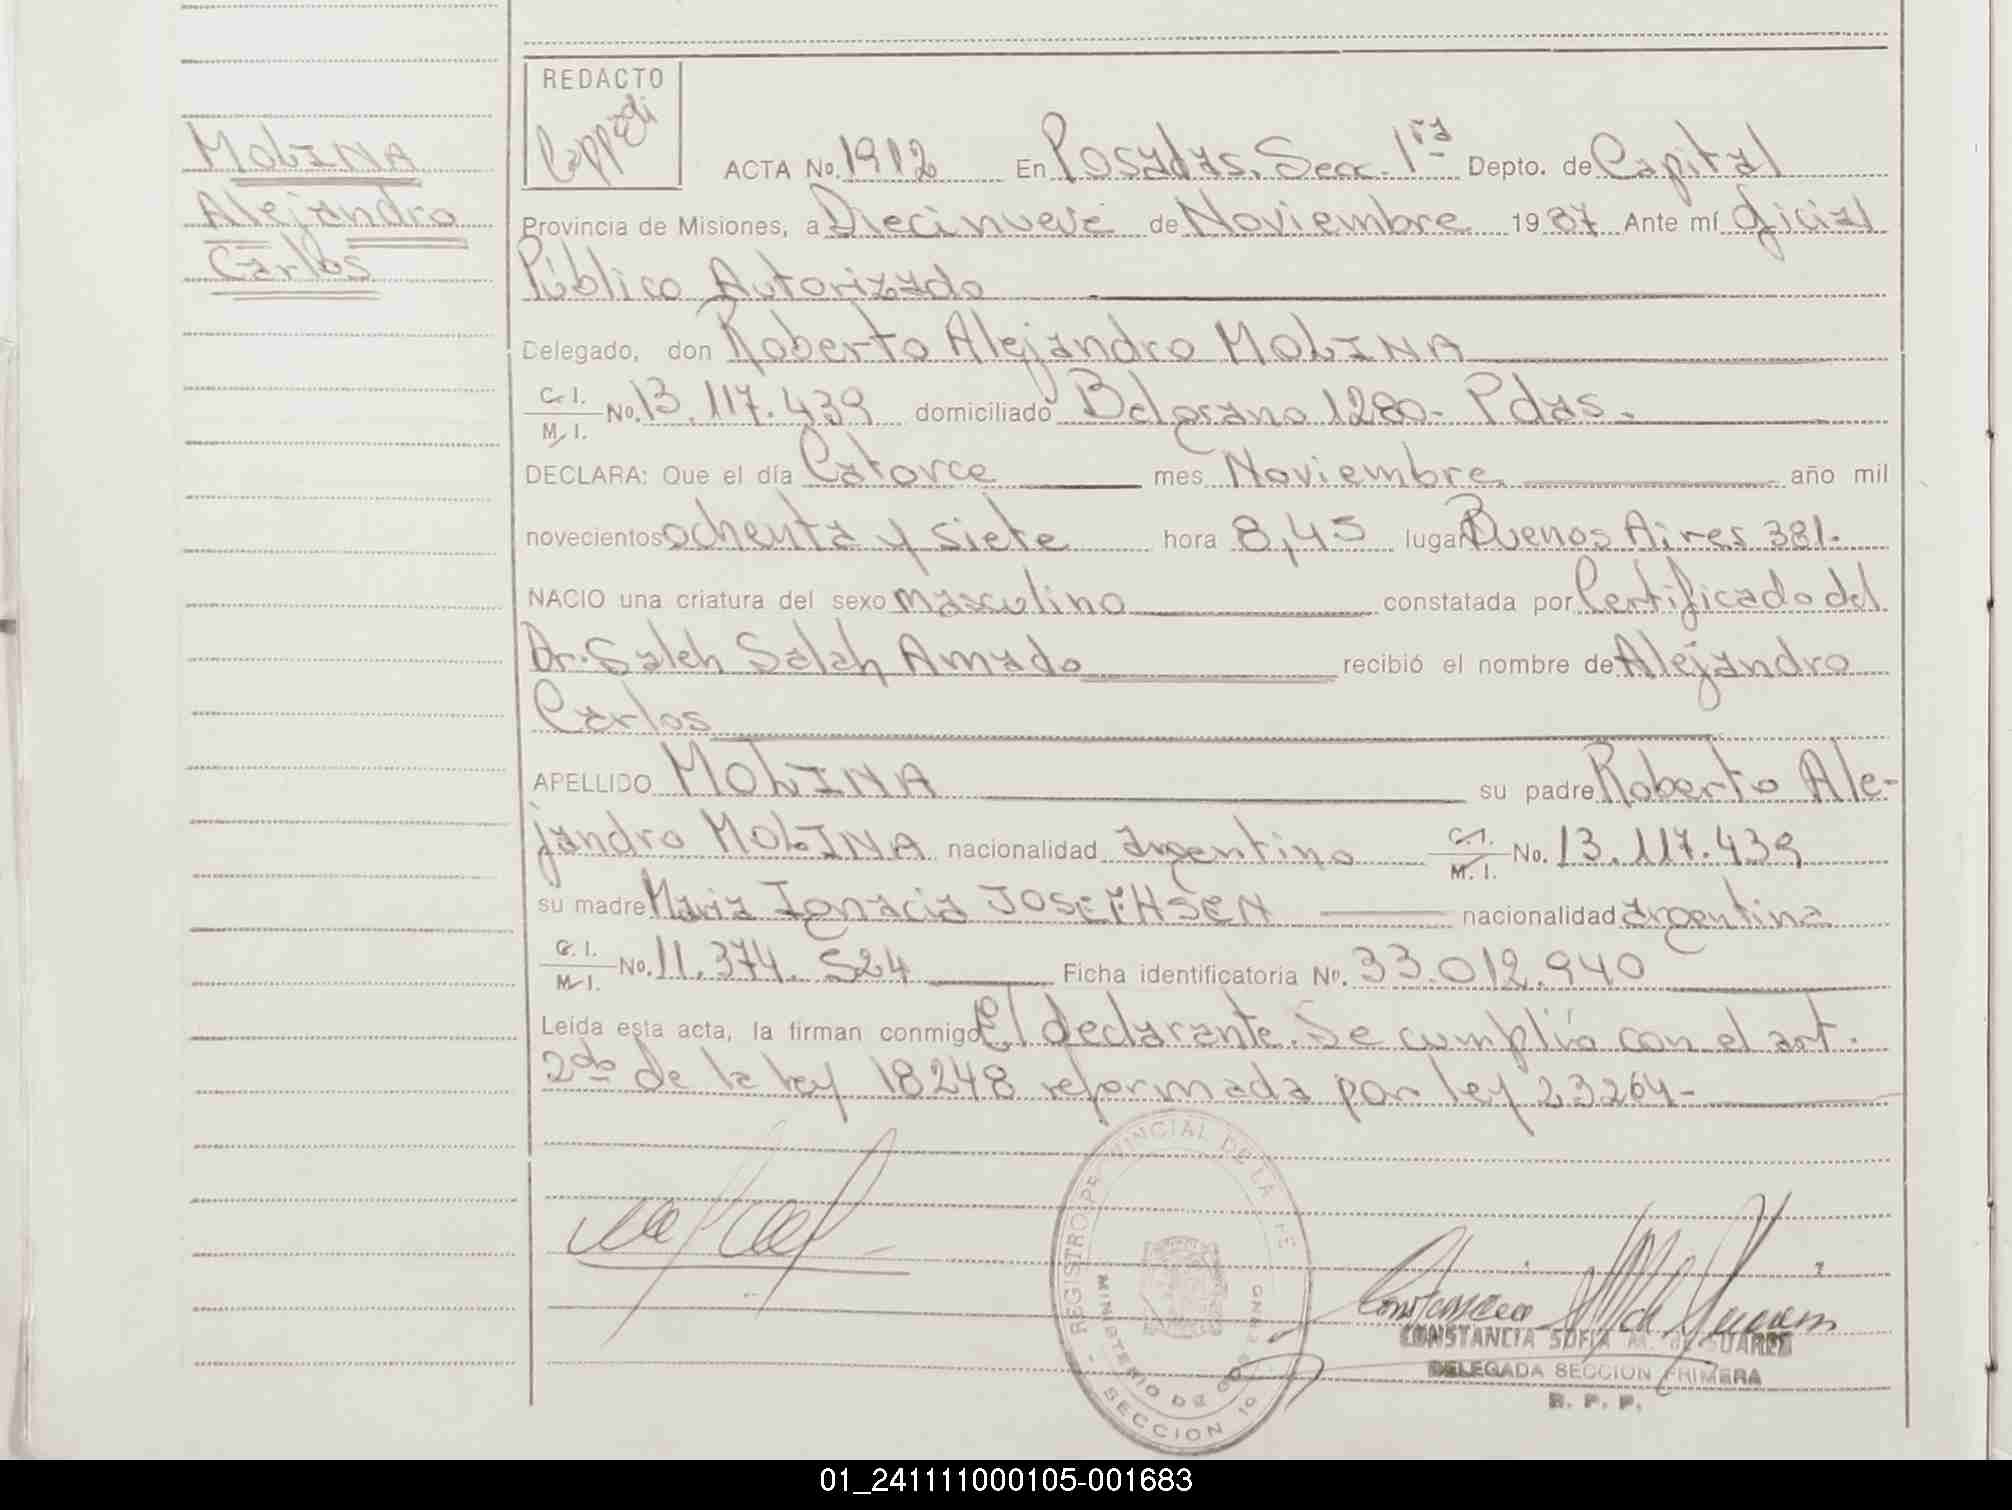 MOLINA
Alejandro
Carlos
REDACTO
ACTA No. 1912 En Posadas, Secc. 1ra Depto. de Capital
Provincia de Misiones, a Diecinueve de Noviembre 1987 Ante mí Oficial
Público Autorizado
Delegado, don Roberto Alejandro MOLINA
C. I.
M. I. No. 13.117.439 domiciliado Belgrano 1280- Pdas.
DECLARA: Que el día Catorce mes Noviembre año mil
novecientos ochenta y siete hora 8,45 lugar Buenos Aires 381.
NACIO una criatura del sexo masculino constatada por Certificado del
Dr. Saleh Salah Amado recibió el nombre de Alejandro
Carlos
APELLIDO MOLINA su padre Roberto Ale-
jandro MOLINA nacionalidad argentino C. I.
M. I. No. 13.117.439
su madre María Ignacia JOSEPHSEN nacionalidad argentina
C. I.
M. I. No. 11.374.524 Ficha identificatoria No. 33.012.940
Leída esta acta, la firman conmigo El declarante. Se cumplió con el art.
2do de la ley 18248 reformada por ley 23264-
REGISTRO PROVINCIAL DE LA PE
MINISTERIO DE
SECCION 1o
CONSTANCIA SOFIA M. DE SUARES
DELEGADA SECCION PRIMERA
R. P. P.
01_241111000105-001683